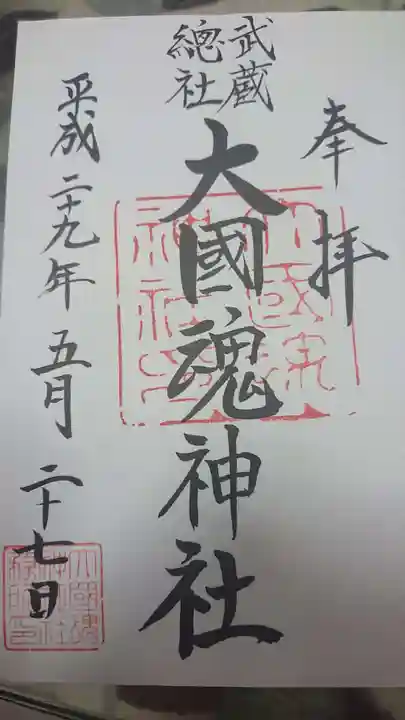 奉拝
武蔵
總社
大國魂神社
平成二十九年五月二十七日